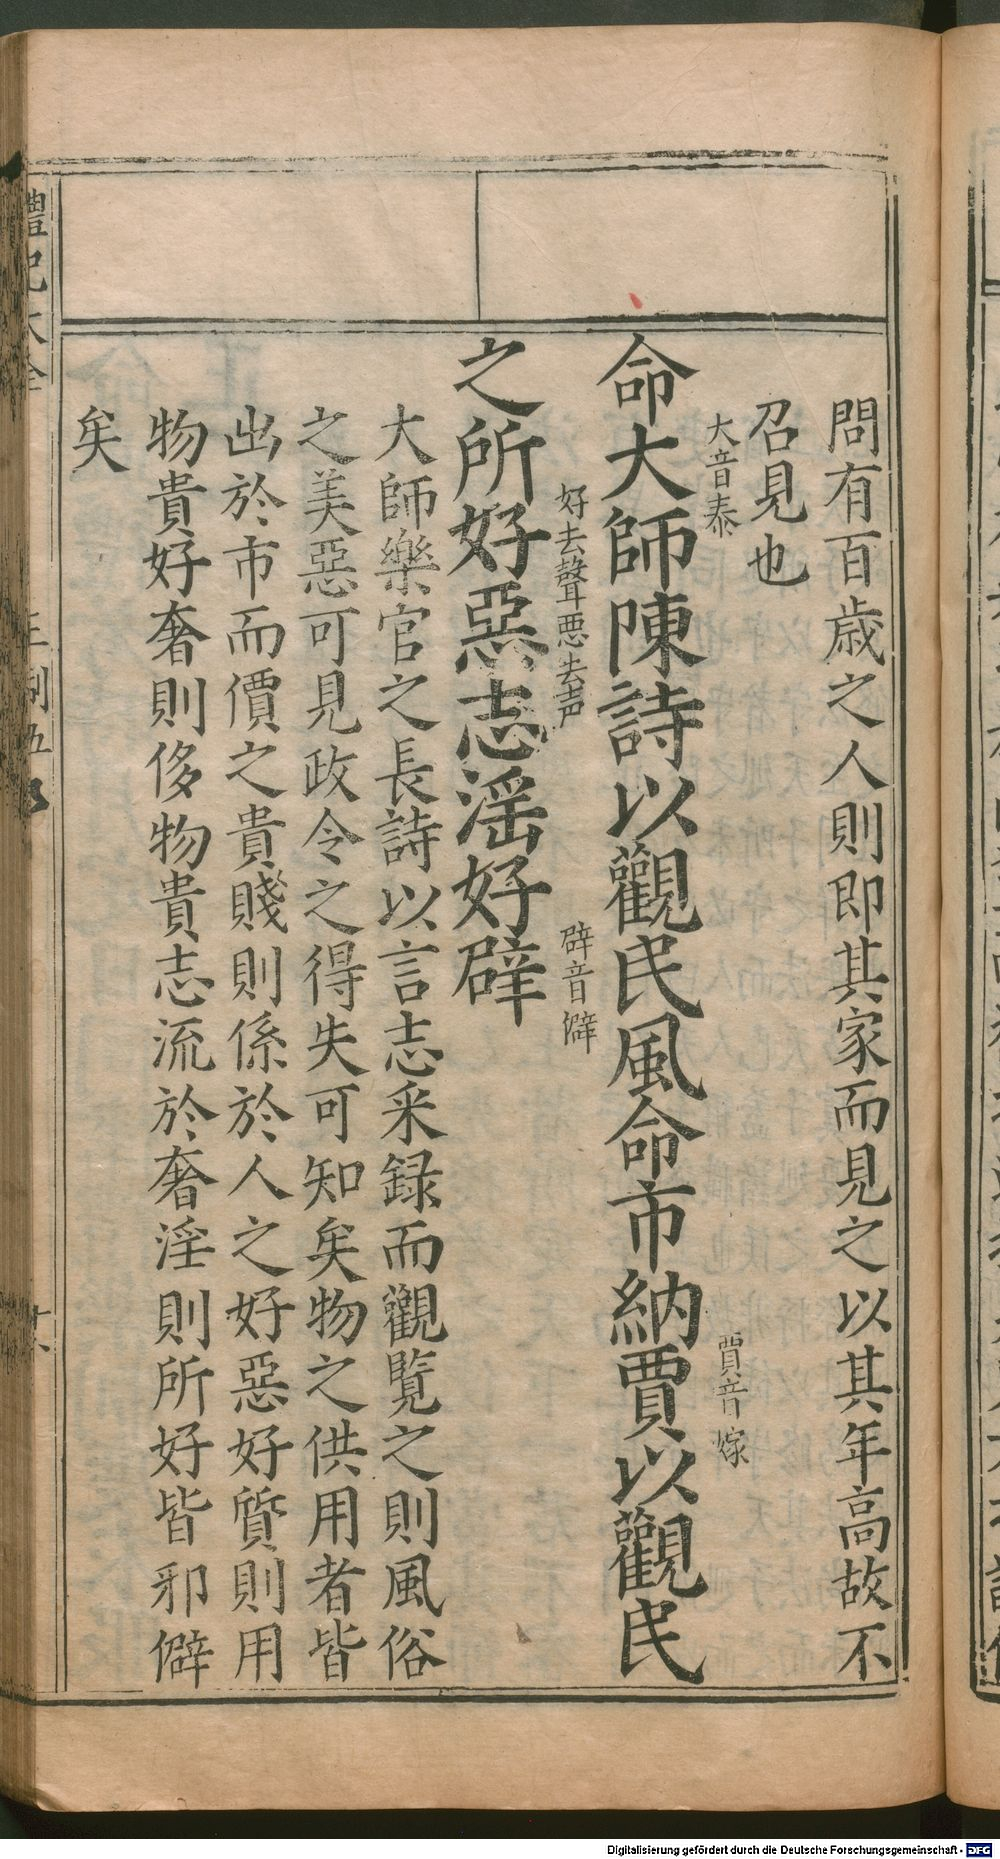 問有百歲之人則即其家而見之以其年高故不
召見也
大音泰
賈音嫁
命大師陳詩以觀民風命市納賈以觀民
好去聲惡去声
辟音僻
之所好惡志淫好辟
大師樂官之長詩以言志采録而觀覽之則風俗
之美惡可見政令之得失可知矣物之供用者皆
出於市而價之貴賤則係於人之好惡好質則用
物貴好奢則侈物貴志流於奢淫則所好皆邪僻
矣
禮記大全
王制五
Digitalisierung gefördert durch die Deutsche Forschungsgemeinschaft - DFG